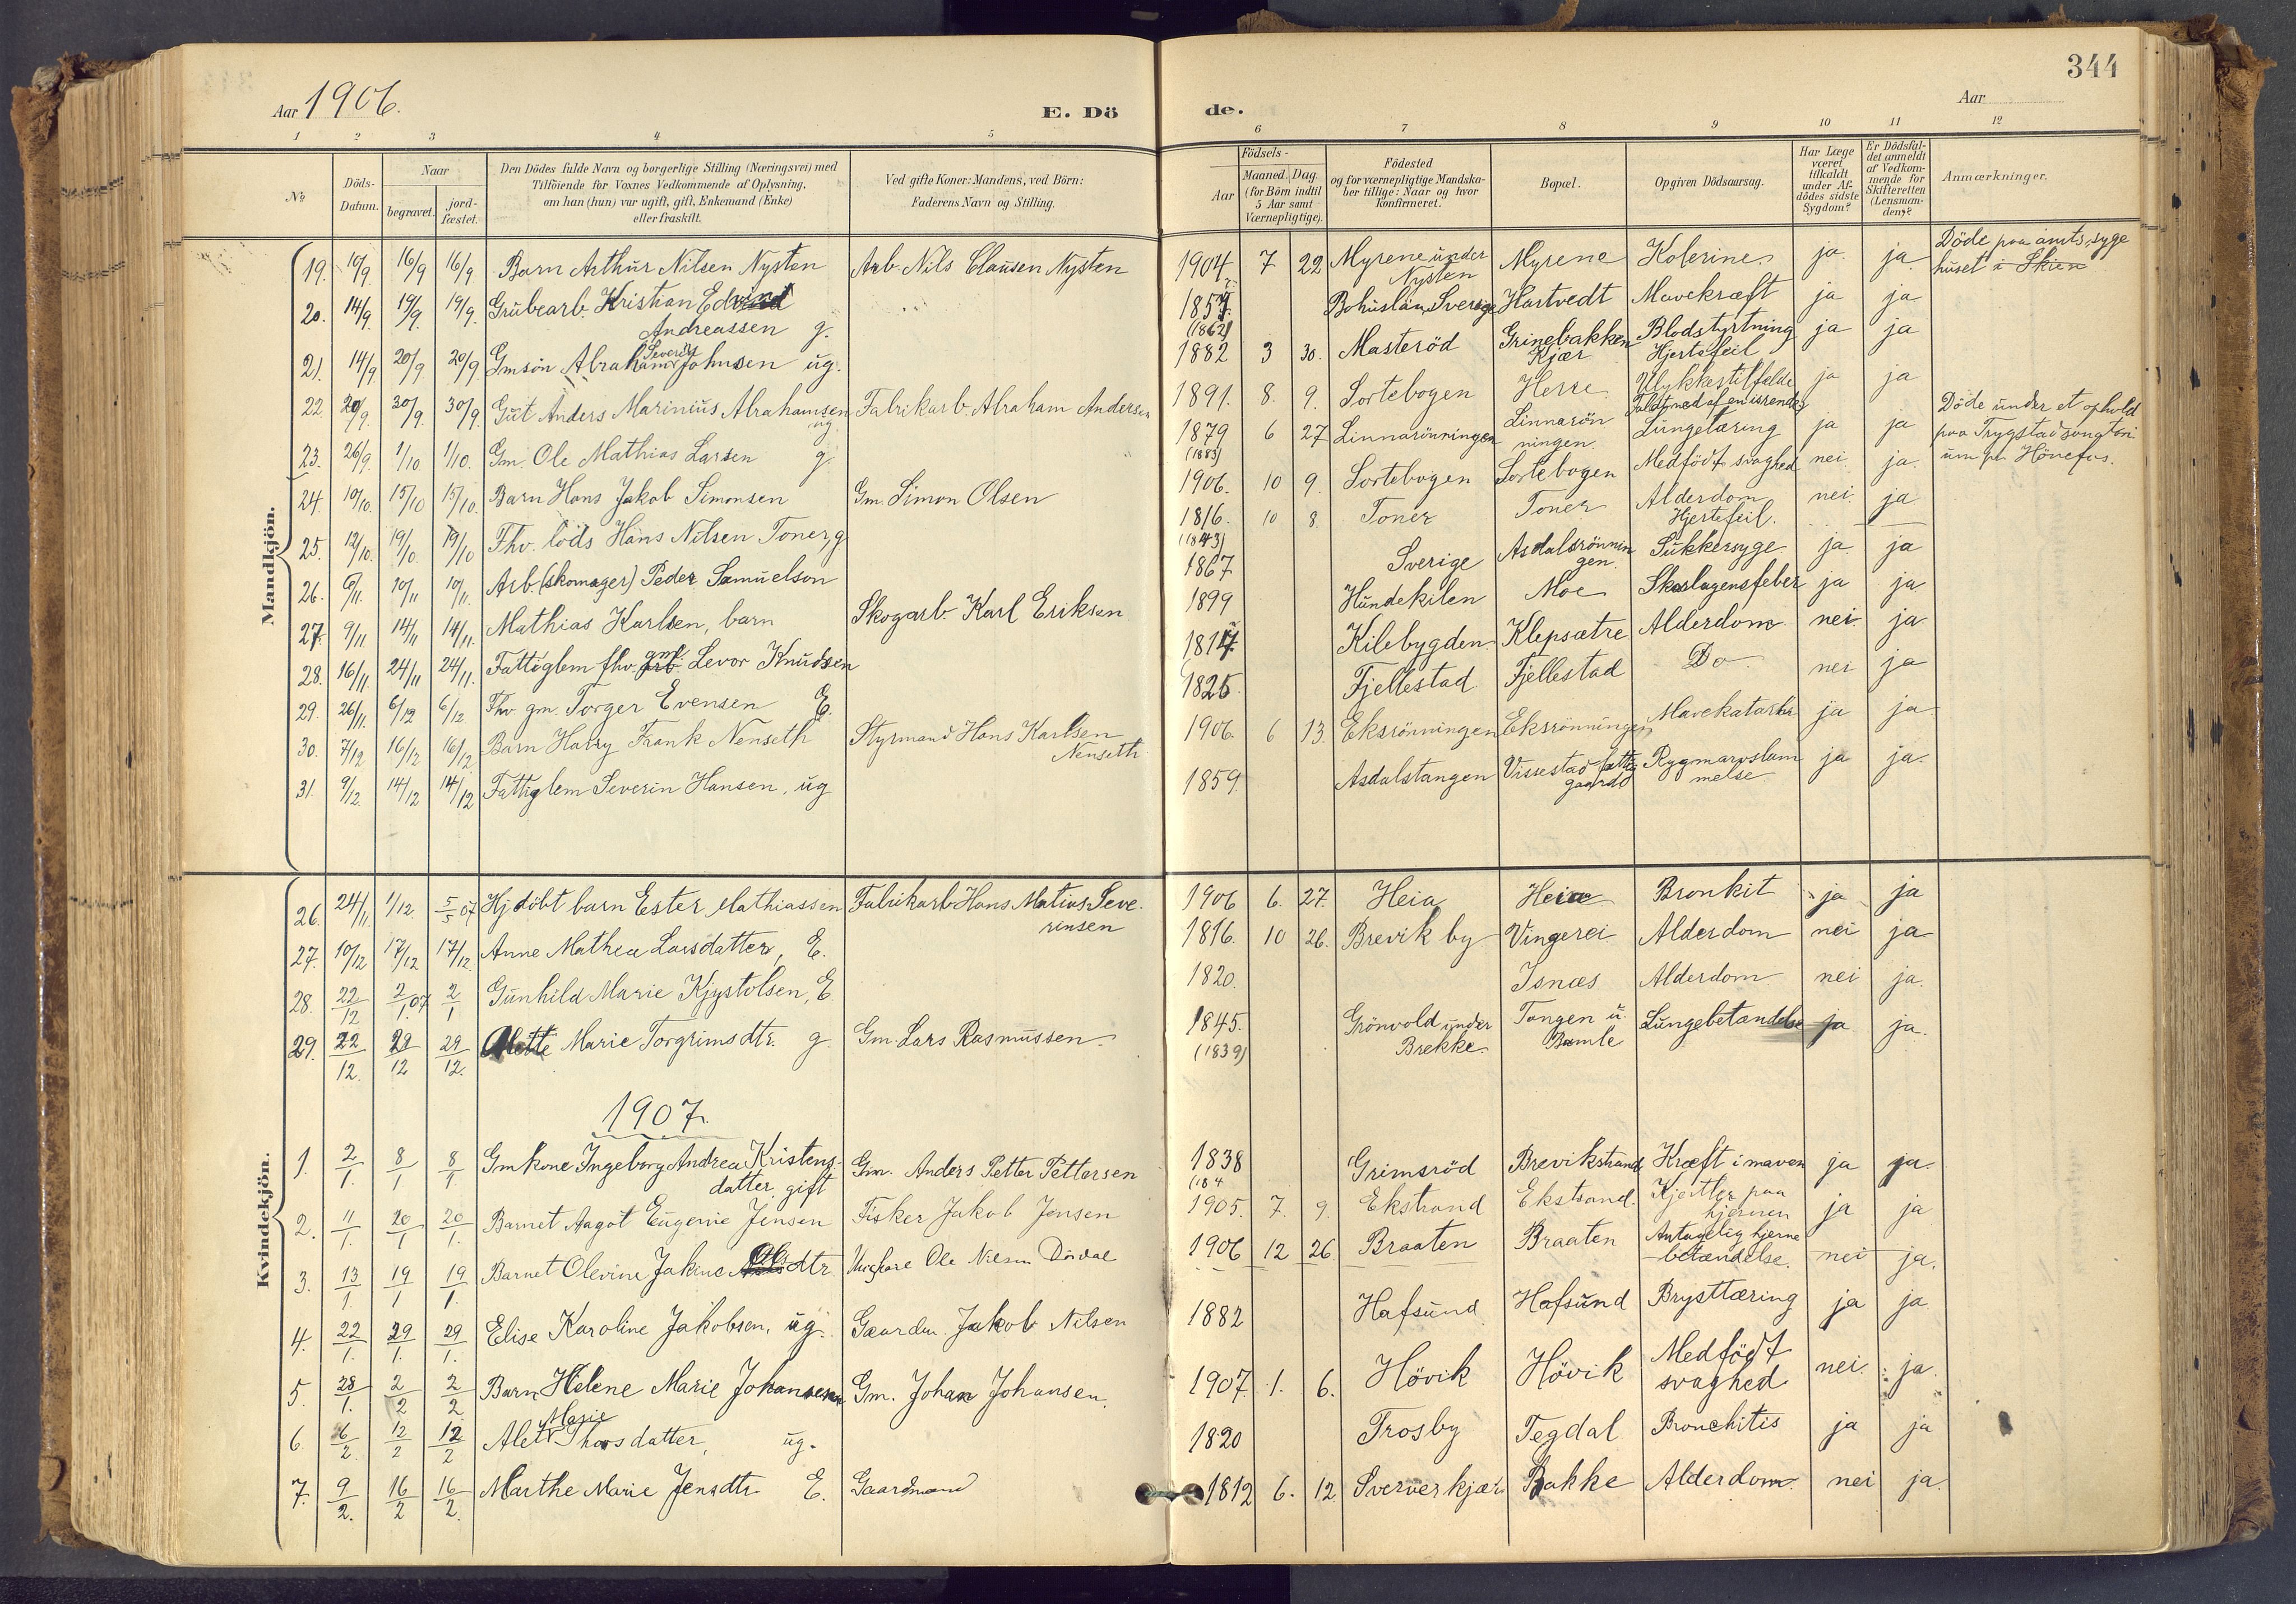 344
Aar 1906.
E. Dö de.
Aar
1 2 3 4 5 6 7 8 9 10 11 12
No
Döds-Datum.
Naar
begravet.
jord-fæstet.
Den Dödes fulde Navn og borgerlige Stilling (Næringsvei) med
Tilföiende for Voxnes Vedkommende af Oplysning,
om han (hun) var ugift, gift, Enkemand (Enke)
eller fraskilt.
Ved gifte Koner: Mandens, ved Börn:
Faderens Navn og Stilling.
Födsels-
Aar
Maaned. Dag.
(for Börn indtil
5 Aar samt
Værnepligtige).
Födested
og for værnepligtige Mandska-
ber tillige: Naar og hvor
konfirmeret.
Bopæl.
Opgiven Dödsaarsag.
Har Læge
været
tilkaldt
under Af-
dödes sidste
Sygdom?
Er Dödsfal-
det anmeldt
af Vedkom-
mende for
Skifteretten
(Lensman-
den)?
Anmærkninger.
Mandkjön.
19. 10/9 16/9 16/9 Barn Arthur Nilsen Nysten Arb. Nils Clausen Nysten 1904 7 22 Myrene under Nysten Myrene Kolerine ja ja Döde paa amts syge huset i Skien
20. 14/9 19/9 19/9 Grubearb. Kristian Edvind Andreassen g. 1857 (1862) Bohuslän Sverige Hartvedt Mavekræft ja ja
21. 14/9 20/9 20/9 Gmsön Abraham Severin Johnsen ug. 1882 3 30. Masteröd Grinebakken Kjær Blodstyrtning Hjertefeil ja ja
22. 20/9 30/9 30/9 Gut Anders Marinius Abrahamsen ug Fabrikarb. Abraham Andersen 1891. 8. 9. Sortebogen Herre Ulykkestilfelde ja ja
23. 26/9 1/10 1/10. Gm. Ole Mathias Larsen g. 1879 (1883) 6 27 Linnarönningen Linnarönningen Lungetæring ja ja Döde under et ophold paa
24. 10/10. 15/10 15/10. Barn Hans Jakob Simonsen Gm. Simon Olsen 1906. 10 9. Sortebogen Sortebogen Medfödt svaghed nei ja.
25. 12/10. 19/10 19/10 Fhv. lods Hans Nilsen Toner, g 1816. (1843) 10 8. Toner Toner Alderdom Hjertefeil. nei. ja
26. 6/11. 10/11 10/11. Arb. (skomager) Peder Samuelson 1867 Sverige Asdalsrönningen Sukkersyge ja ja
27. 9/11 14/11 14/11. Mathias Karlsen, barn Skogarb. Karl Eriksen 1899 Hundekilen Moe Skarlagensfeber ja ja
28. 16/11. 24/11 24/11. Fattiglem fhv. gm. Levor Knudsen 1817. Kilebygden Klepsætre Alderdom nei. ja
29. 26/11. 6/12 6/12 Fhv gm. Torger Evensen E. 1825. Fjellestad Fjellestad Do nei ja
30. 7/12 16/12 16/12 Barn Harry Frank Nenseth Styrmand Hans Karlsen Nenseth 1906. 6 13. Eksrönningen Eksrönningen Mavekatarhr ja ja
31. 9/12. 14/12 14/12 Fattiglem Severin Hansen, ug 1859. Asdalstangen Vissestad fattiggaard Rygmarvslammelse ja ja.
Kvindekjön.
26. 24/11 1/12. 5/5 07 Hjdöbt barn Ester Mathiassen Fabrikarb Hans Matias Severinsen 1906 6. 27. Heia Heia Bronkit ja ja
27. 10/12 17/12 17/12. Anne Mathea Larsdatter, E. 1816. 10 26. Brevik by Vingerei Alderdom nei ja
28. 22/12 2/1.07 2/1 Gunhild Marie Kjystolsen, E 1820. Isnæs Alderdom nei ja.
29. 22/12. 29/12 29/12. Alette Marie Torgrimsdtr. g Gm. Lars Rasmussen 1845. (1839) Grönvold under Brekke Tangen u. Bamle Lungebetændelse ja ja.
1907.
1. 2/1. 8/1 8/1 Gmkone Ingeborg Andrea Kristensdatter gift Gm. Anders Petter Pettersen 1838 (184 Grimsröd Brevikstrand Kræft i maven ja ja.
2. 11/1. 20/1 20/1. Barnet Aagot Eugenie Jensen Fisker Jakob Jensen 1905. 7. 9. Ekstrand Ekstrand. Kjertler paa hjernen ja ja
3. 13/1. 19/1 19/1. Barnet Olevine Jakine Olsdtr. Ungkare Ole Nilsen Dördal 1906 12 26 Braaten Braaten Antagelig hjerne betændelse. nei ja.
4. 22/1. 29/1. 29/1. Elise Karoline Jakobsen, ug. Gaardm Jakob Nilsen 1882 Hafsund Hafsund Brysttæring ja ja.
5. 28/1. 2/2 2/2 Barn Helene Marie Johansen Gm. Johan Johansen. 1907. 1. 6. Hövik Hövik Medfödt svaghed nei ja.
6 6/2. 12/2 12/2 Alet Marie Thorsdatter, ug. 1820 Trosby Tegdal Bronchitis ja ja
7. 9/2. 16/2 16/2. Marthe Marie Jensdtr E. Gaardmand 1812 6. 12 Sververkjær Bakke Alderdom. nei ja.